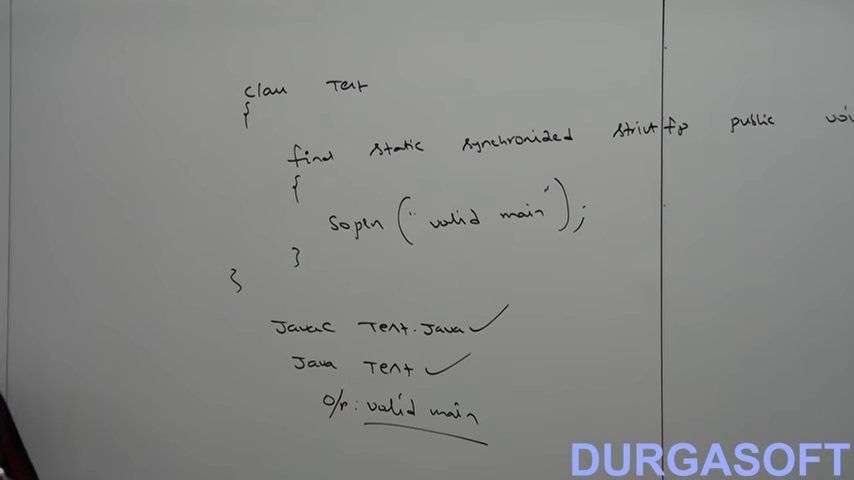 class Test
{
final static synchronized strictfp public voi
{
Sopln ("valid main");
}
}
Javac Test.Java ✓
Java Test ✓
O/P: valid main
DURGASOFT